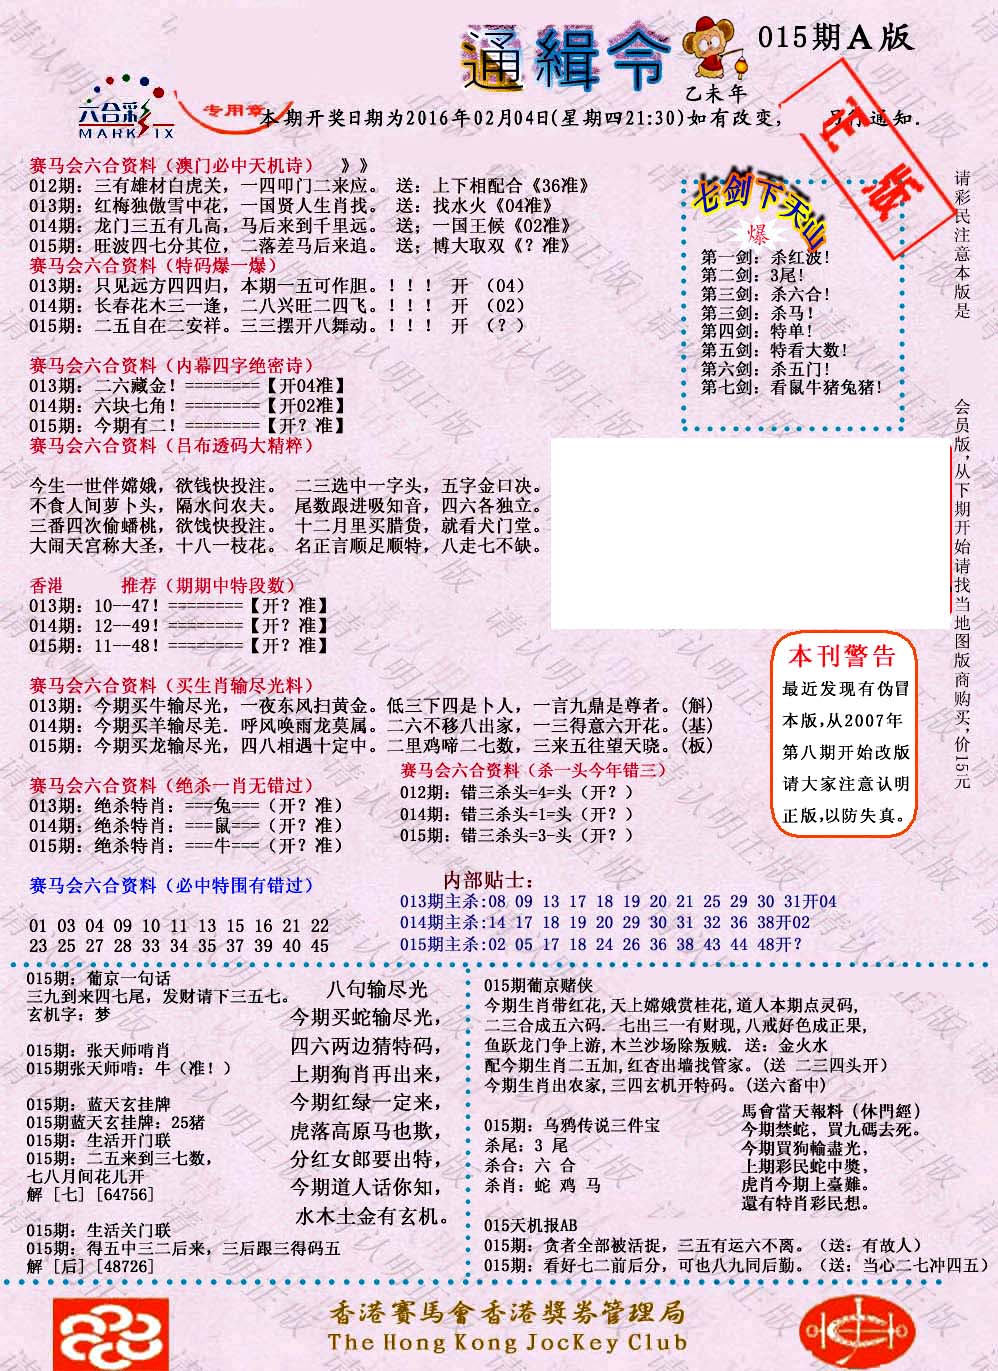 通緝令
015期A版
乙未年
六合彩
MARK SIX
专用章
本期开奖日期为2016年02月04日(星期四21:30)如有改变, 另行通知.
赛马会六合资料（澳门必中天机诗） 》》
012期: 三有雄材白虎关, 一四叩门二来应。 送: 上下相配合《36准》
013期: 红梅独傲雪中花, 一国贤人生肖找。 送: 找水火《04准》
014期: 龙门三五有几高, 马后来到千里远。 送; 一国王候《02准》
015期: 旺波四七分其位, 二落差马后来追。 送; 博大取双《? 准》
赛马会六合资料（特码爆一爆）
013期: 只见远方四四归, 本期一五可作胆。! ! ! 开 （04）
014期: 长春花木三一逢, 二八兴旺二四飞。! ! ! 开 （02）
015期: 二五自在二安祥。三三摆开八舞动。! ! ! 开 （? ）
七剑下天山
爆
第一剑: 杀红波!
第二剑: 3尾!
第三剑: 杀六合!
第三剑: 杀马!
第四剑: 特单!
第五剑: 特看大数!
第六剑: 杀五门!
第七剑: 看鼠牛猪兔猪!
请彩民注意本版是
会员版,从下期开始请找当地图版商购买,价15元
赛马会六合资料（内幕四字绝密诗）
013期: 二六藏金! ========【开04准】
014期: 六块七角! ========【开02准】
015期: 今期有二! ========【开? 准】
赛马会六合资料（吕布透码大精粹）
今生一世伴嫦娥, 欲钱快投注。 二三选中一字头, 五字金口决。
不食人间萝卜头, 隔水问农夫。 尾数跟进吸知音, 四六各独立。
三番四次偷蟠桃, 欲钱快投注。 十二月里买腊货, 就看犬门堂。
大闹天宫称大圣, 十八一枝花。 名正言顺足顺特, 八走七不缺。
香港 推荐（期期中特段数）
013期: 10--47! ========【开? 准】
014期: 12--49! ========【开? 准】
015期: 11--48! ========【开? 准】
本刊警告
最近发现有伪冒
本版,从2007年
第八期开始改版
请大家注意认明
正版,以防失真。
赛马会六合资料（买生肖输尽光料）
013期: 今期买牛输尽光, 一夜东风扫黄金。低三下四是卜人, 一言九鼎是尊者。(斛)
014期: 今期买羊输尽羌. 呼风唤雨龙莫属。二六不移八出家, 一三得意六开花。(基)
015期: 今期买龙输尽光, 四八相遇十定中。二里鸡啼二七数, 三来五往望天晓。(板)
赛马会六合资料（绝杀一肖无错过）
013期: 绝杀特肖: ===兔===（开? 准）
014期: 绝杀特肖: ===鼠===（开? 准）
015期: 绝杀特肖: ===牛===（开? 准）
赛马会六合资料（杀一头今年错三）
012期: 错三杀头=4=头（开? ）
014期: 错三杀头=1=头（开? ）
015期: 错三杀头=3-头（开? ）
赛马会六合资料（必中特围有错过）
01 03 04 09 10 11 13 15 16 21 22
23 25 27 28 33 34 35 37 39 40 45
内部贴士:
013期主杀:08 09 13 17 18 19 20 21 25 29 30 31开04
014期主杀:14 17 18 19 20 29 30 31 32 36 38开02
015期主杀:02 05 17 18 24 26 36 38 43 44 48开?
015期: 葡京一句话
三九到来四七尾, 发财请下三五七。
玄机字: 梦
015期: 张天师啃肖
015期张天师啃: 牛（准! ）
015期: 蓝天玄挂牌
015期蓝天玄挂牌: 25猪
015期: 生活开门联
015期: 二五来到三七数,
七八月间花儿开
解 [七] [64756]
015期: 生活关门联
015期: 得五中三二后来, 三后跟三得码五
解 [后] [48726]
八句输尽光
今期买蛇输尽光,
四六两边猜特码,
上期狗肖再出来,
今期红绿一定来,
虎落高原马也欺,
分红女郎要出特,
今期道人话你知,
水木土金有玄机。
015期葡京赌侠
今期生肖带红花,天上嫦娥赏桂花,道人本期点灵码,
二三合成五六码. 七出三一有财现,八戒好色成正果,
鱼跃龙门争上游,木兰沙场除叛贼. 送: 金火水
配今期生肖二五加,红杏出墙找管家。(送 二三四头开）
今期生肖出农家,三四玄机开特码。(送六畜中)
015期: 乌鸦传说三件宝
杀尾: 3 尾
杀合: 六 合
杀肖: 蛇 鸡 马
馬會當天報料（休門經）
今期禁蛇, 買九碼去死。
今期買狗輸盡光,
上期彩民蛇中獎,
虎肖今期上臺難。
還有特肖彩民想。
015天机报AB
015期: 贪者全部被活捉, 三五有运六不离。（送: 有故人）
015期: 看好七二前后分, 可也八九同后勤。（送: 当心二七冲四五）
香港賽馬會香港獎券管理局
The Hong Kong JocKey Club